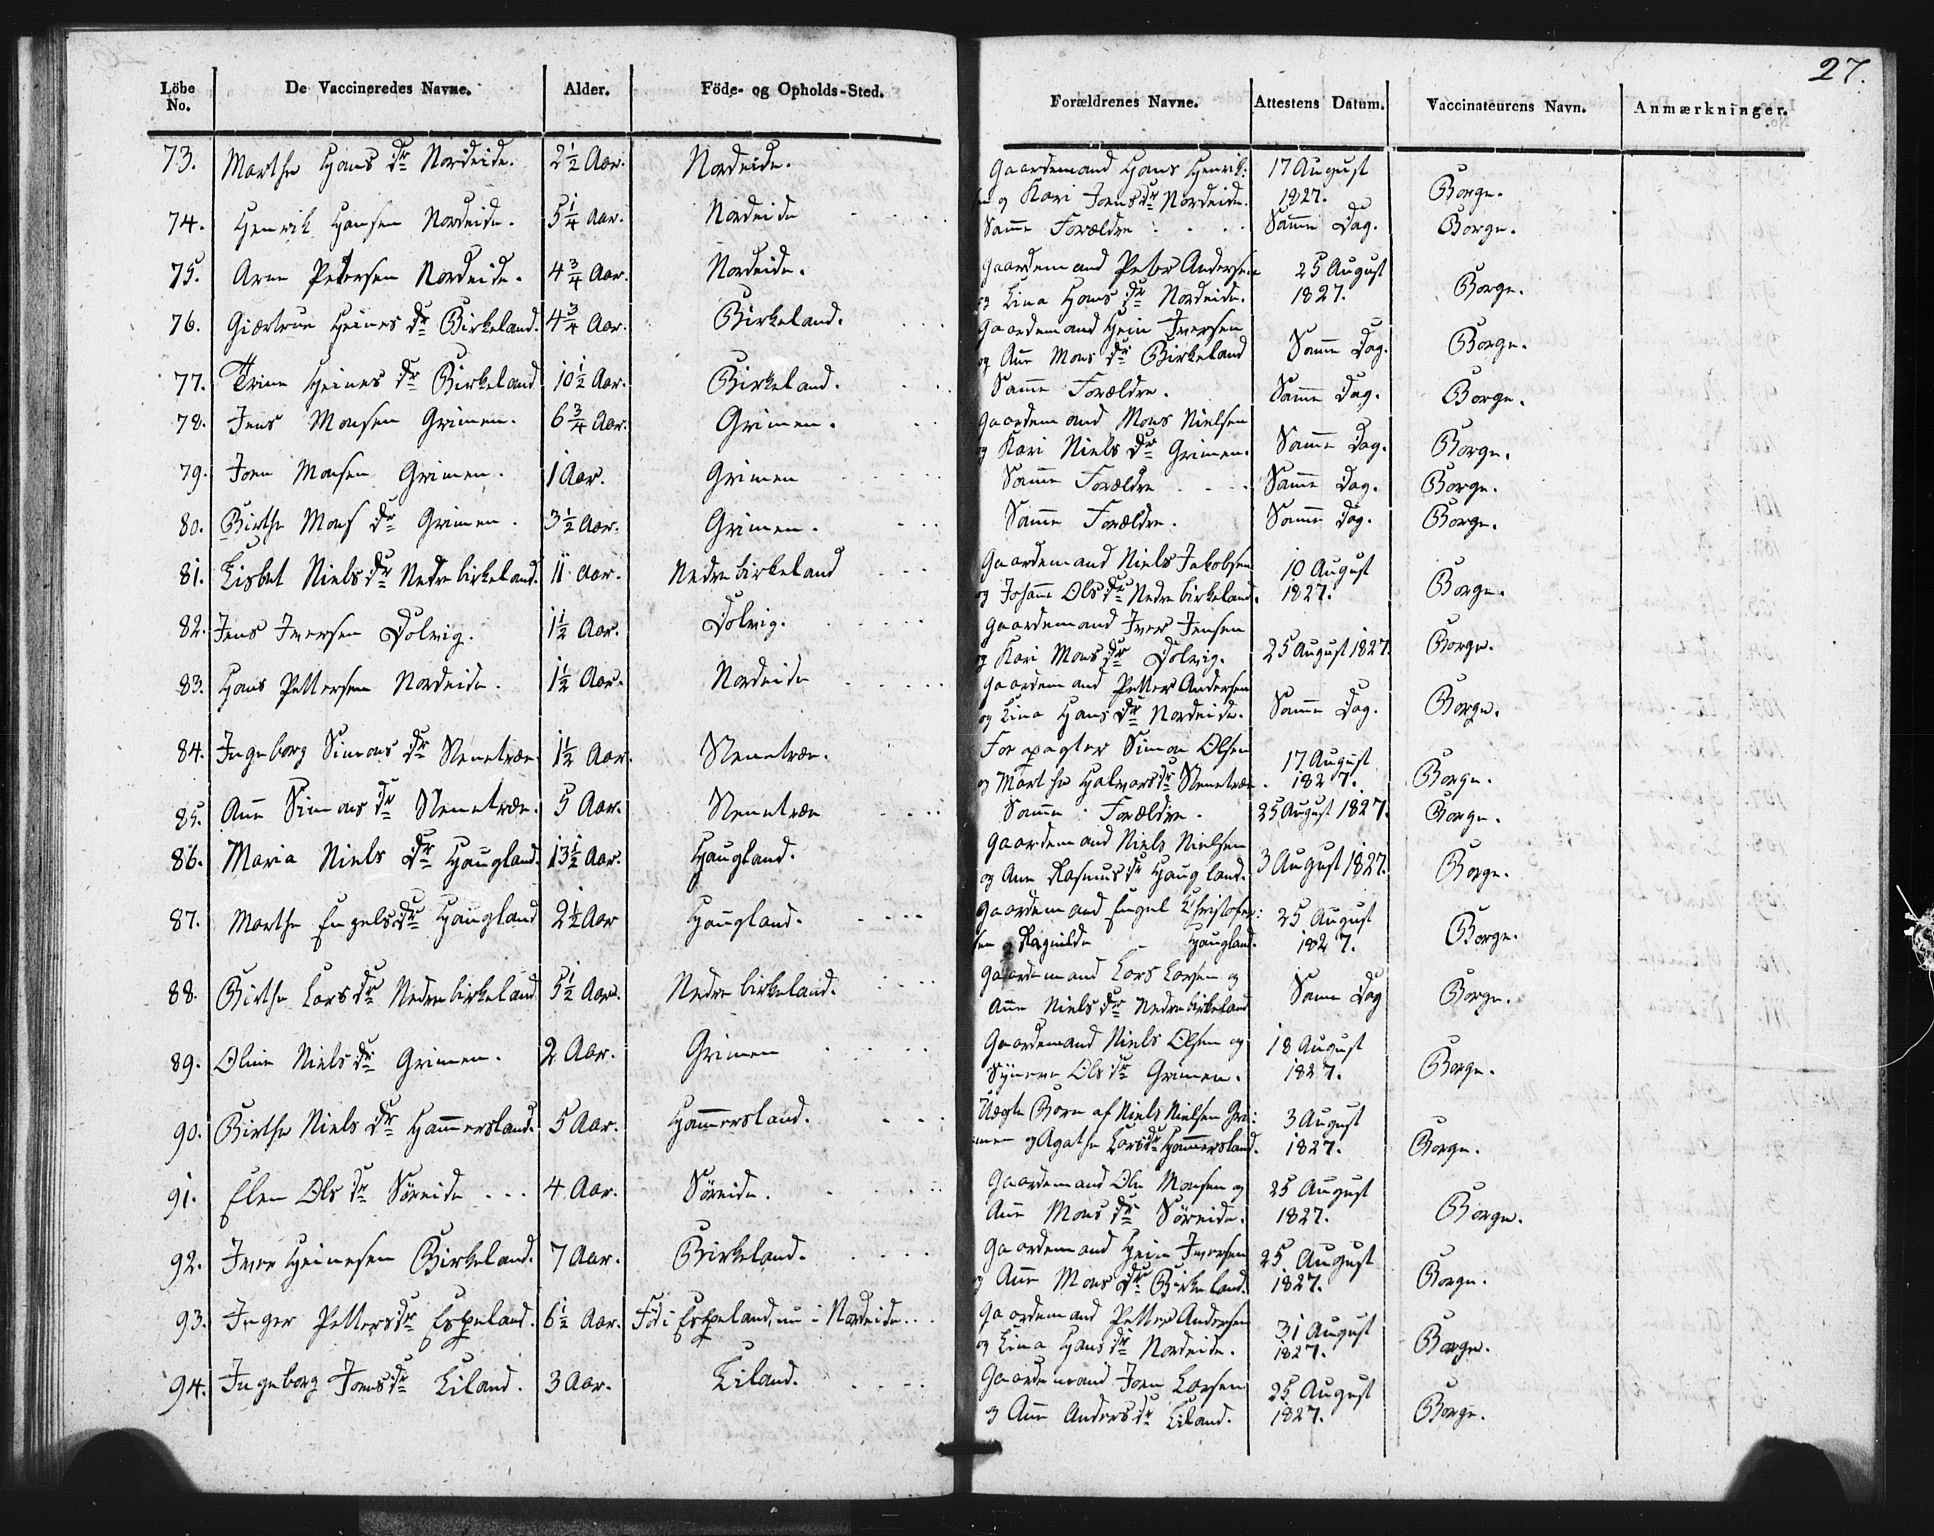 27.
Löbe No. De Vaccineredes Navne. Alder. Föde- og Opholds-Sted. Forældrenes Navne. Attestens Datum. Vaccinateurens Navn. Anmærkninger.
73. Marthe Hans Dr Nordeide. 2½ Aar. Nordeide. Gaardemand Hans Henrik: 17 August
sen og Kari Joensdr Nordeide. 1827. Borge.
74. Henrik Hansen Nordeide. 5¼ Aar. Nordeide Samme Forældre Samme Dag. Borge.
75. Arne Petersen Nordeide. 4¾ Aar. Nordeide. Gaardemand Peter Andersen 25 August
og Lina Hans Dr Nordeide. 1827. Borge.
76. Giærtrue Heines Dr Birkeland. 4¾ Aar. Birkeland. Gaardemand Hein Iversen
og Ane Mons Dr Birkeland Samme Dag. Borge.
77. Trine Heines Dr Birkeland 10½ Aar. Birkeland. Samme Forældre. Samme Dag. Borge.
78. Jens Monsen Grimen. 6¾ Aar. Grimen. Gaardemand Mons Nielsen
og Kari Niels Dr Grimen. Samme Dag. Borge.
79. Joen Monsen Grimen. 1 Aar. Grimen Samme Forældre Samme Dag. Borge.
80. Birthe Mons Dr Grimen. 3½ Aar. Grimen. Samme Forældre. Samme Dag. Borge.
81. Lisbet Niels Dr Nedre birkeland. 11 Aar. Nedre birkeland Gaardemand Niels Jakobsen 10 August
og Johane Ols Dr Nedre birkeland. 1827. Borge.
82. Jens Iversen Dolvig. 1½ Aar. Dolvig. Gaardemand Iver Jensen
og Kari Mons Dr Dolvig. 25 August 1827. Borge.
83. Hans Pettersen Nordeide. 1½ Aar. Nordeide Gaardemand Petter Andersen
og Lina Hans Dr Nordeide. Samme Dag. Borge.
84. Ingeborg Simons Dr Stenetræe 1½ Aar. Stenetræe. Forpagter Simon Olsen 17 August
og Marthe Halvorsdr Stenetræe. 1827. Borge.
85. Ane Simons Dr Stenetræe. 5 Aar. Stenetræe Samme Forældre. 25 August 1827. Borge.
86. Maria Niels Dr Haugland. 13½ Aar. Haugland. Gaardemand Niels Nielsen
og Ane Rasmus Dr Haugland. 3 August 1827. Borge.
87. Marthe Engelsdr Haugland 2½ Aar Haugland. Gaardemand Engel Christofer: 25 August
sen og Ragnilde Haugland. 1827. Borge.
88. Birthe Lars Dr Nedre birkeland 5½ Aar. Nedre birkeland. Gaardemand Lars Larsen og
Ane Niels Dr Nedre birkeland Samme Dag Borge.
89. Oline Niels Dr Grimen. 2 Aar. Grimen Gaardemand Niels Olsen og 18 August
Synneve Ols Dr Grimen. 1827. Borge.
90. Birthe Niels Dr Hammersland. 5 Aar. Hammersland. Uægte Born af Niels Nielsen Gri: 3 August
men og Agathe Larsdr Hammersland. 1827. Borge.
91. Elen Ols Dr Söreide 4 Aar. Söreide. Gaardemand Ole Monsen og 25 August
Ane Mons Dr Söreide. 1827. Borge.
92. Iver Heinesen Birkeland. 7 Aar. Birkeland. Gaardemand Hein Iversen 25 August
og Ane Mons Dr Birkeland. 1827. Borge.
93. Inger Pettersdr Espeland. 6½ Aar. Föd i Espeland, nu i Nordeide. Gaardemand Petter Andersen 31 August
og Lina Hans Dr Nordeide. 1827. Borge.
94. Ingeborg Joensdr Liland. 3 Aar. Liland. Gaardemand Joen Larsen 25 August
og Ane Anders Dr Liland. 1827. Borge.